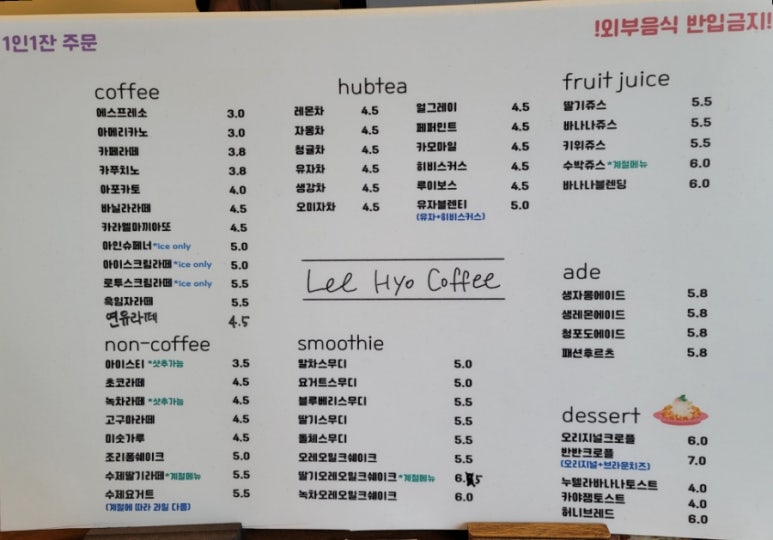 1인1잔 주문
!외부음식 반입금지!
coffee
에스프레소 3.0
아메리카노 3.0
카페라떼 3.8
카푸치노 3.8
아포카토 4.0
바닐라라떼 4.5
카라멜마끼아또 4.5
아인슈페너 *ice only 5.0
아이스크림라떼 *ice only 5.0
로투스크림라떼 *ice only 5.5
흑임자라떼 5.5
연유라떼 4.5
non-coffee
아이스티 *샷추가능 3.5
초코라떼 4.5
녹차라떼 *샷추가능 4.5
고구마라떼 4.5
미숫가루 4.5
조리퐁쉐이크 5.0
수제딸기라떼 *계절메뉴 5.5
수제요거트 5.5
(계절에 따라 과일 다름)
hubtea
레몬차 4.5
자몽차 4.5
청귤차 4.5
유자차 4.5
생강차 4.5
오미자차 4.5
얼그레이 4.5
페퍼민트 4.5
카모마일 4.5
히비스커스 4.5
루이보스 4.5
유자블렌티 5.0
(유자+히비스커스)
Lee Hyo Coffee
smoothie
말차스무디 5.0
요거트스무디 5.0
블루베리스무디 5.5
딸기스무디 5.5
돌체스무디 5.5
오레오밀크쉐이크 5.5
딸기오레오밀크쉐이크 *계절메뉴 6.5
녹차오레오밀크쉐이크 6.0
fruit juice
딸기쥬스 5.5
바나나쥬스 5.5
키위쥬스 5.5
수박쥬스 *계절메뉴 6.0
바나나블렌딩 6.0
ade
생자몽에이드 5.8
생레몬에이드 5.8
청포도에이드 5.8
패션후르츠 5.8
dessert
오리지널크로플 6.0
반반크로플 7.0
(오리지널+브라운치즈)
누텔라바나나토스트 4.0
카야잼토스트 4.0
허니브레드 6.0